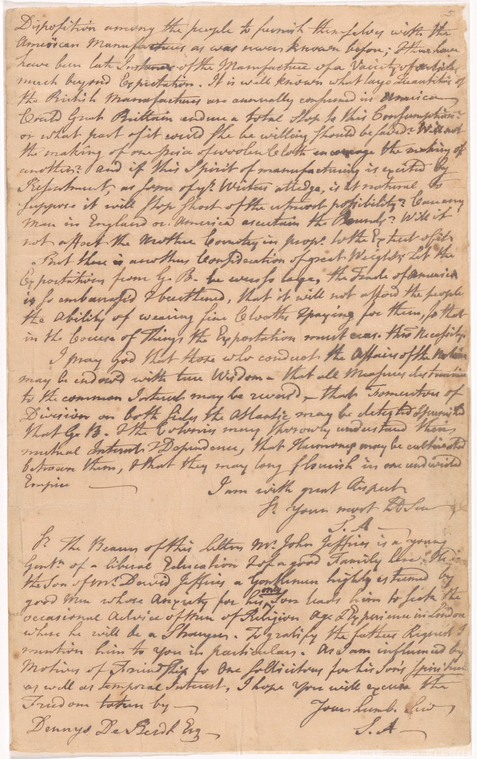 Disposition among the people to furnish themselves with the
American Manufactures as was never known before; & there have
been late Instances of the Manufacture of a Variety of articles
much beyond Expectation. It is well known what large Quantities of
the British Manufactures are annually consumed in America
Could Great Brittain endure a total Stop to this Consumption?
or what part of it would she be willing should be saved? Will not
the making of one piece of woolen Cloth encourage the making of
another? and if this Spirit of manufacturing is excited by
Resentment, as some of yr Writers alledge, is it natural to
suppose it will stop short of the utmost possibility? Can any
man in England or America ascertain the Bounds? Will it
not affect the Mother Country in propn to the Extent of it?
But there is another Consideration of great Weight. Let the
Exportations from G. B. be ever so large, the Trade of America
is so embarrassd & burthened, that it will not afford the people
the Ability of wearing fine Cloaths & paying for them, so that
in the Course of Things the Exportation must cease thro Necessity.
I may God that those who conduct the Affairs of the Nation
may be indowd with true Wisdom - that all Measures destructive
to the common Interest may be - that Promoters of
Division on both sides the Atlantic may be detested &
that G. B. & the Colonies may thorowly understand their
mutual Interest & Dependence, that Harmony may be cultivated
between them, & that they may long flourish in one undivided
Empire
I am with great Respect
Sr Yours most
S. A
Sr The Bearer of this Letter Mr. John Jeffries is a young
Gentn of a liberal Education & of a good Family here; He is
the Son of Mr. David Jeffries a Gentleman highly esteemed by
good Men whose Anxiety for his only Son leads him to seek the
occasional Advice of Men of Religion Age & Experience in London
where he will be a Stranger. To gratify the fathers Request I
mention him to you in particular. As I am influenced by
Motives of Friendship to One sollicitous for his Son's Spiritual
as well as temporal Interest, I hope You will excuse the
Freedom taken by
Your humb. Serv.
Dennys De Berdt Esq
S. A